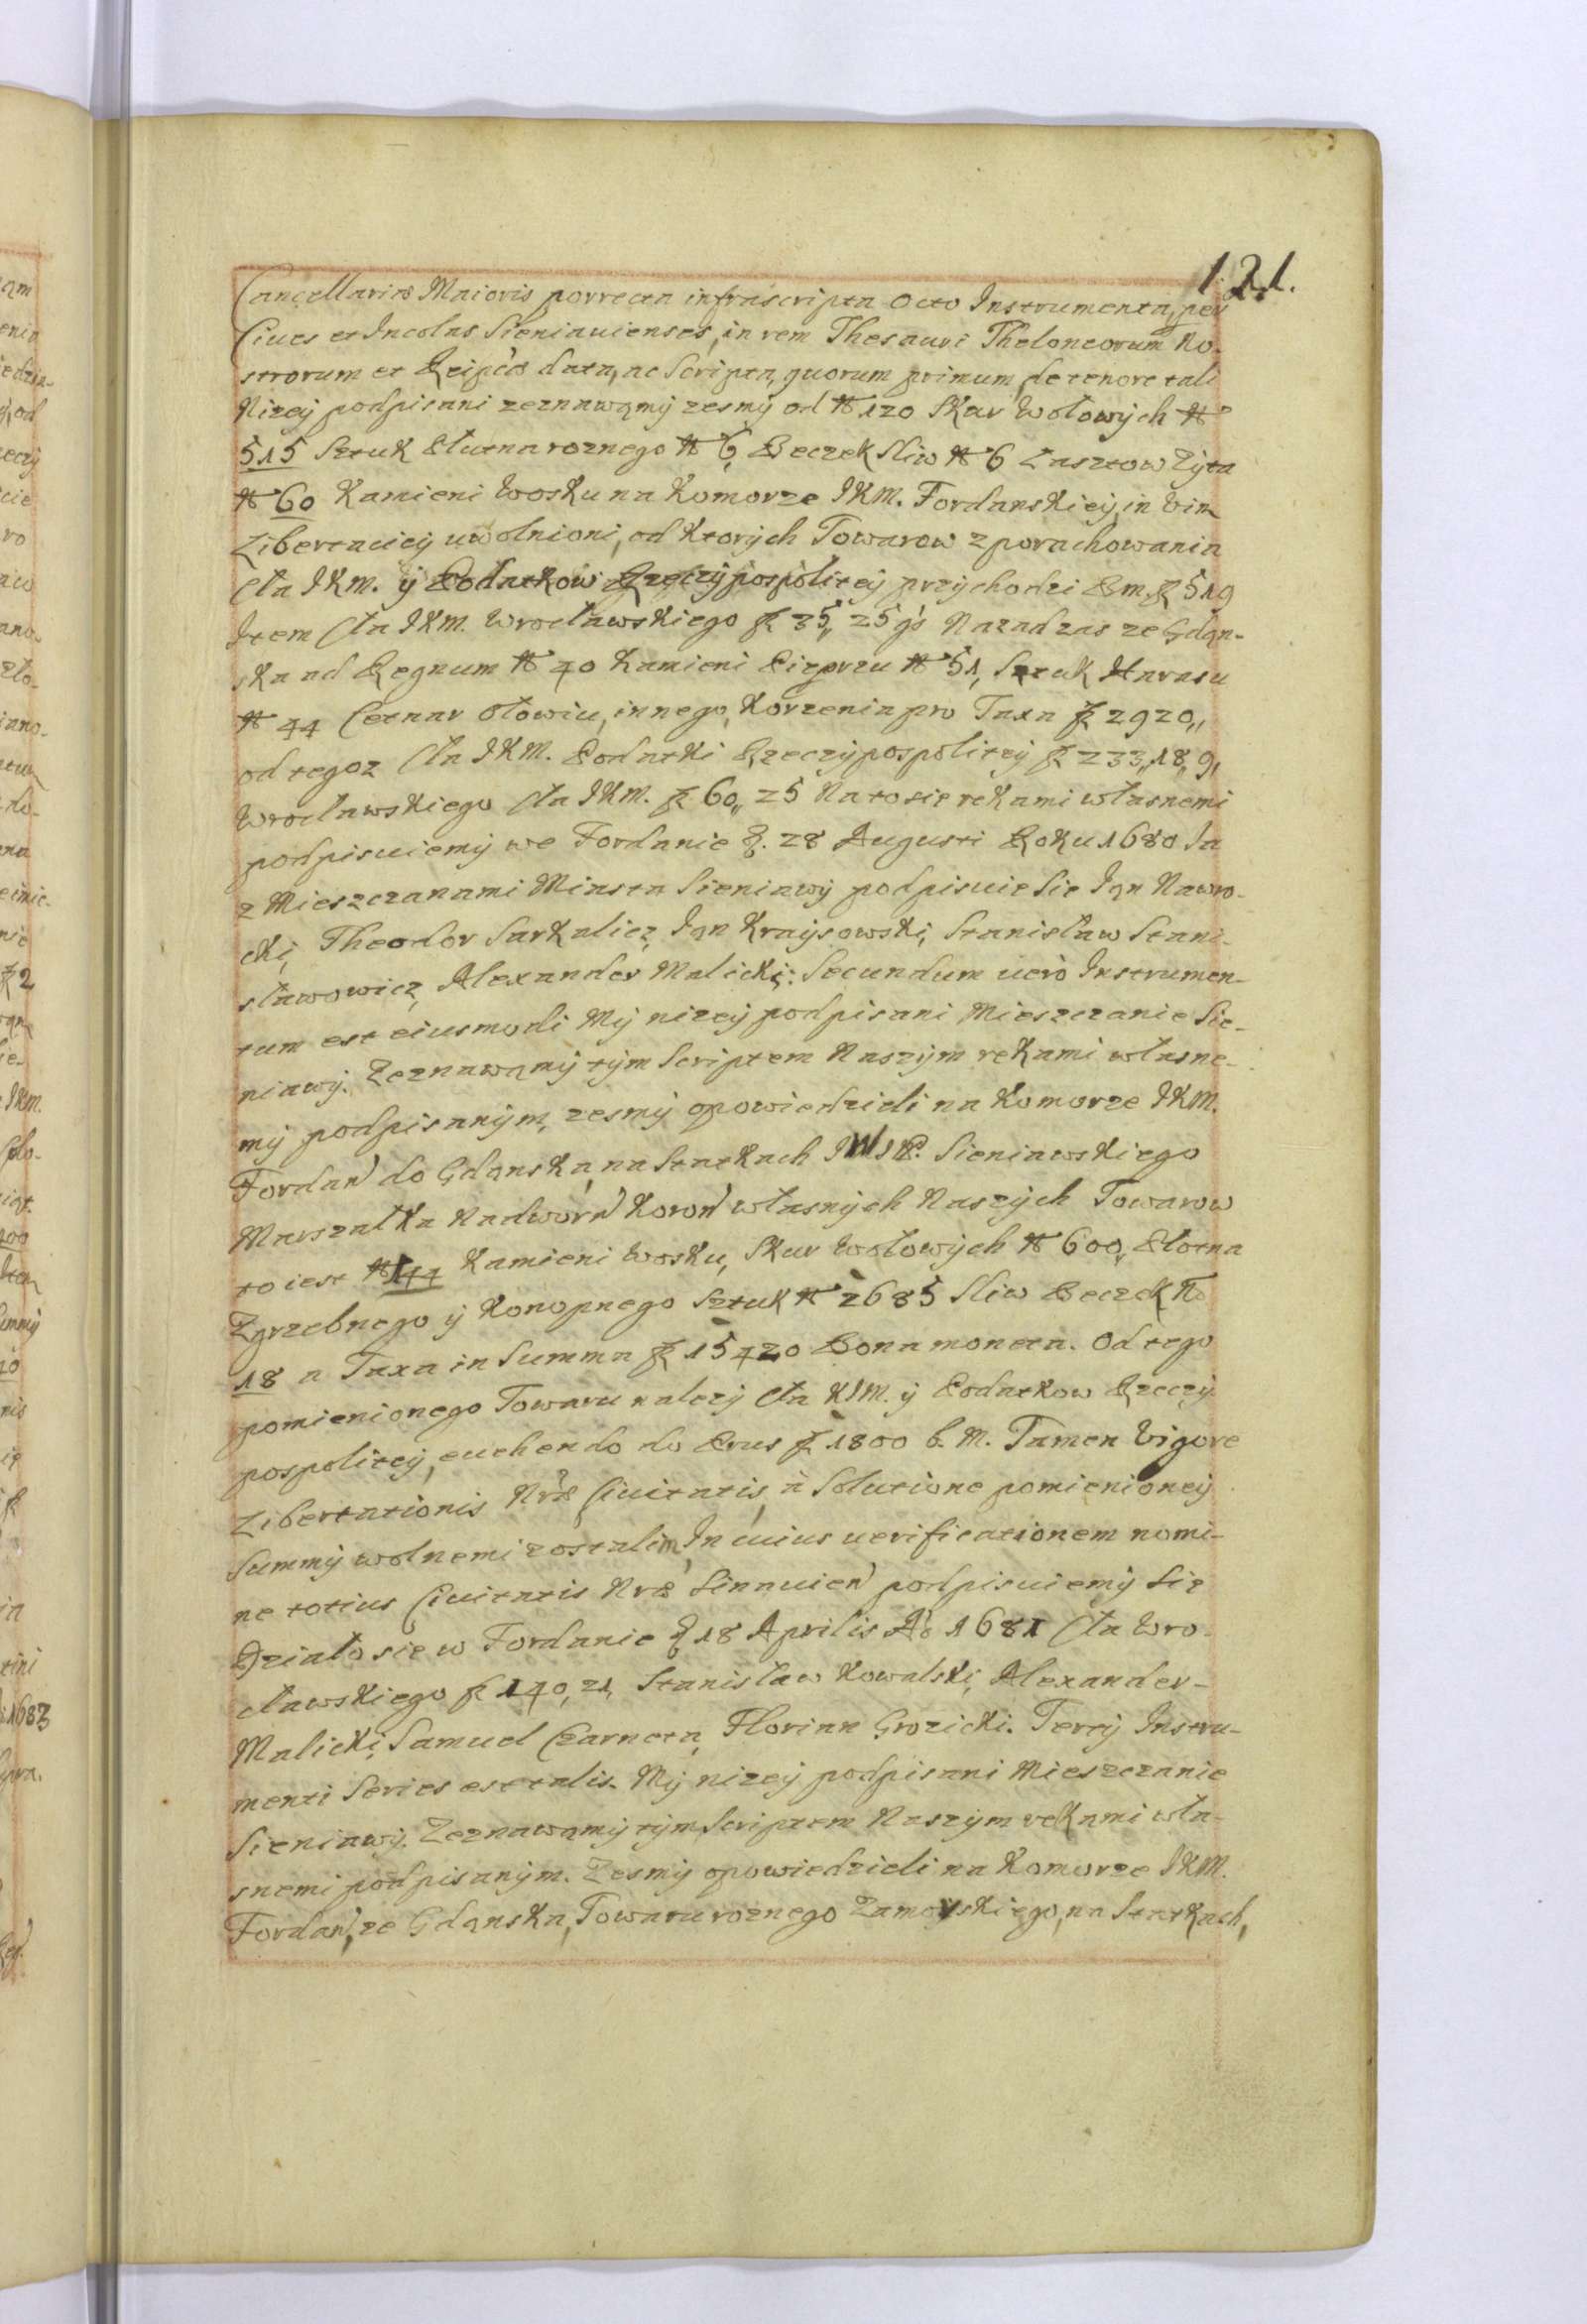 121.
Cancellariæ Maioris porrecta infrascripta Octo Instrumenta, per
Ciues et Incolas Sieniauienses, in rem Thesauri Theloneorum No-
strorum et Reipcæ data, ac Scripta, quorum primum de tenore tali
Niżey podpisani zeznawamÿ żesmÿ od № 120 Skur Wołowÿch №
515 Sztuk Płutna roznego № 6, Beczek Sliw № 6 Łasztow Żÿta
№ 60 Kamieni Wosku na Komorze JKM. Fordanskieÿ, in vim
Libertacieÿ uwolnioni, od ktorÿch Towarow z porachowania
Cła JKM. ÿ Podatkow Rzeczÿpospoliteÿ przÿchodzi Bm. f. 519
Item Cła JKM. Wrocławskiego f 35,, 25 gs Nazad zas ze Gdąn-
ska ad Regnum № 40 Kamieni Pieprzu № 51, Sztuk Harasu
№ 44 Cetnar Ołowiu, innego, Korzenia pro Taxa f 2920,,
od tegoz Cła JKM. Podatki Rzeczÿpospoliteÿ f 233,,18,,9,
Wrocławskiego Cła JKM. f 60,, 25 Na to się rękami własnemi
podpisuiemÿ we Fordanie D. 28 Augusti Roku 1680 Ja
z Mieszczanami Miasta Sieniawÿ podpisuię Się Jąn Nawro-
cki, Theodor Sarkalicz, Jąn Kraÿsowski, Stanisław Stani-
sławowicz, Alexander Malicki: Secundum uerò Instrumen-
tum est eiusmodi Mÿ niżeÿ podpisani Mieszczanie Sie-
niawÿ. Zeznawąmÿ tÿm Scriptem Naszÿm rękami własne-
mÿ podpisanÿm, żesmÿ opowiedzieli na Komorze JKM.
Fordań do Gdąnska, na Statkach JW JP. Sieniawskiego
Marszałka Nadworń Koroń własnÿch Naszÿch Towarow
to iest № 144 Kamieni Wosku, Skur Wołowÿch № 600,, Płotna
Zgrzebnego ÿ Konopnego Sztuk № 2685 Sliw Beczek №
18 a Taxa in Summa f 15420 Bona moneta. Od tego
pomienionego Towaru nalezÿ Cła KJM. ÿ Podatkow Rzeczÿ-
pospoliteÿ, euehendo do Prus f 1800 b. M. Tamen Vigore
Libertationis Nræ Ciuitatis, à Solutione pomienioneÿ
Summÿ wolnemi zostalim, In cuius uerificationem nomi-
ne totius Ciuitatis Nræ Sinauień podpisuiemÿ Się
Działo się w Fordanie D 18 Aprilis Aō 1681 Cła Wro-
cławskiego f 140, 21, Stanisław Kowalski, Alexander-
Malicki, Samuel Czarnota, Florian Grozicki. Tertÿ Instru-
menti Series est talis. Mÿ niżeÿ podpisani Mieszczanie
Sieniawÿ. Zeznawąmÿ tÿm Scriptem Naszÿm rękami wła-
snemi podpisanÿm. Żesmÿ opowiedzieli na Komorze JKM.
Fordań, ze Gdąnska, Towaru roznego Zamorskiego, na Statkach,